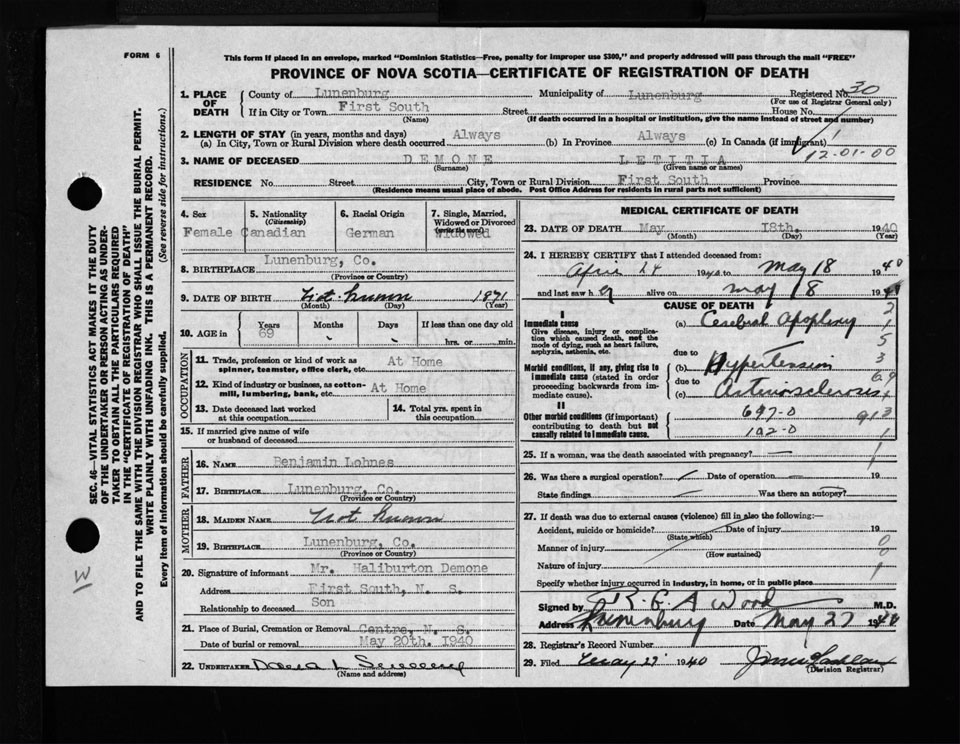 FORM 6
This form if placed in an envelope, marked "Dominion Statistics—Free, penalty for improper use $300," and properly addressed will pass through the mail "FREE"
PROVINCE OF NOVA SCOTIA—CERTIFICATE OF REGISTRATION OF DEATH
1. PLACE OF DEATH
County of Lunenburg Municipality of Lunenburg Registered No. 30
(For use of Registrar General only)
If in City or Town First South Street House No.
(Name) (If death occurred in a hospital or institution, give the name instead of street and number)
2. LENGTH OF STAY (in years, months and days)
(a) In City, Town or Rural Division where death occurred Always (b) In Province Always (c) In Canada (if immigrant)
12-01-00
3. NAME OF DECEASED DEMONE LETITIA
(Surname) (Given name or names)
RESIDENCE No. Street City, Town or Rural Division First South Province
(Residence means usual place of abode. Post Office Address for residents in rural parts not sufficient)
4. Sex
Female
5. Nationality (Citizenship)
Canadian
6. Racial Origin
German
7. Single, Married, Widowed or Divorced (write the word)
Widowed
8. BIRTHPLACE Lunenburg, Co.
(Province or Country)
9. DATE OF BIRTH Not known 1871
(Month) (Day) (Year)
10. AGE in
Years Months Days If less than one day old
69 hrs. or min.
OCCUPATION
11. Trade, profession or kind of work as spinner, teamster, office clerk, etc. At Home
12. Kind of industry or business, as cotton-mill, lumbering, bank, etc. At Home
13. Date deceased last worked at this occupation
14. Total yrs. spent in this occupation
15. If married give name of wife or husband of deceased
FATHER
16. NAME Benjamin Lohnes
17. BIRTHPLACE Lunenburg, Co.
(Province or Country)
MOTHER
18. MAIDEN NAME Not known
19. BIRTHPLACE Lunenburg, Co.
(Province or Country)
20. Signature of informant Mr. Haliburton Demone
Address First South, N. S.
Relationship to deceased Son
21. Place of Burial, Cremation or Removal Centre, N. S.
Date of burial or removal May 20th. 1940
22. UNDERTAKER
(Name and address)
MEDICAL CERTIFICATE OF DEATH
23. DATE OF DEATH May 18th. 1940
(Month) (Day) (Year)
24. I HEREBY CERTIFY that I attended deceased from:
April 24 1940 to May 18 1940
and last saw her alive on May 18 19
CAUSE OF DEATH
I
Immediate cause
Give disease, injury or complication which caused death, not the mode of dying, such as heart failure, asphyxia, asthenia, etc.
(a) Cerebral Apoplexy
due to
Morbid conditions, if any, giving rise to immediate cause (stated in order proceeding backwards from immediate cause).
(b) Hypertension
due to
(c) Arteriosclerosis
II
Other morbid conditions (if important) contributing to death but not causally related to immediate cause.
697-0
102-0
913
25. If a woman, was the death associated with pregnancy?
26. Was there a surgical operation? Date of operation 19
State findings Was there an autopsy?
27. If death was due to external causes (violence) fill in also the following:—
Accident, suicide or homicide? Date of injury 19
(State which)
Manner of injury
(How sustained)
Nature of injury
Specify whether injury occurred in industry, in home, or in public place
Signed by R. G. A Wood M.D.
Address Lunenburg Date May 27 1940
28. Registrar's Record Number
29. Filed May 27 1940
(Division Registrar)
SEC. 46—VITAL STATISTICS ACT MAKES IT THE DUTY
OF THE UNDERTAKER OR PERSON ACTING AS UNDER-
TAKER TO OBTAIN ALL THE PARTICULARS REQUIRED
IN THE "CERTIFICATE OF REGISTRATION OF DEATH"
AND TO FILE THE SAME WITH THE DIVISION REGISTRAR WHO SHALL ISSUE THE BURIAL PERMIT.
WRITE PLAINLY WITH UNFADING INK. THIS IS A PERMANENT RECORD.
Every item of information should be carefully supplied. (See reverse side for instructions.)
W